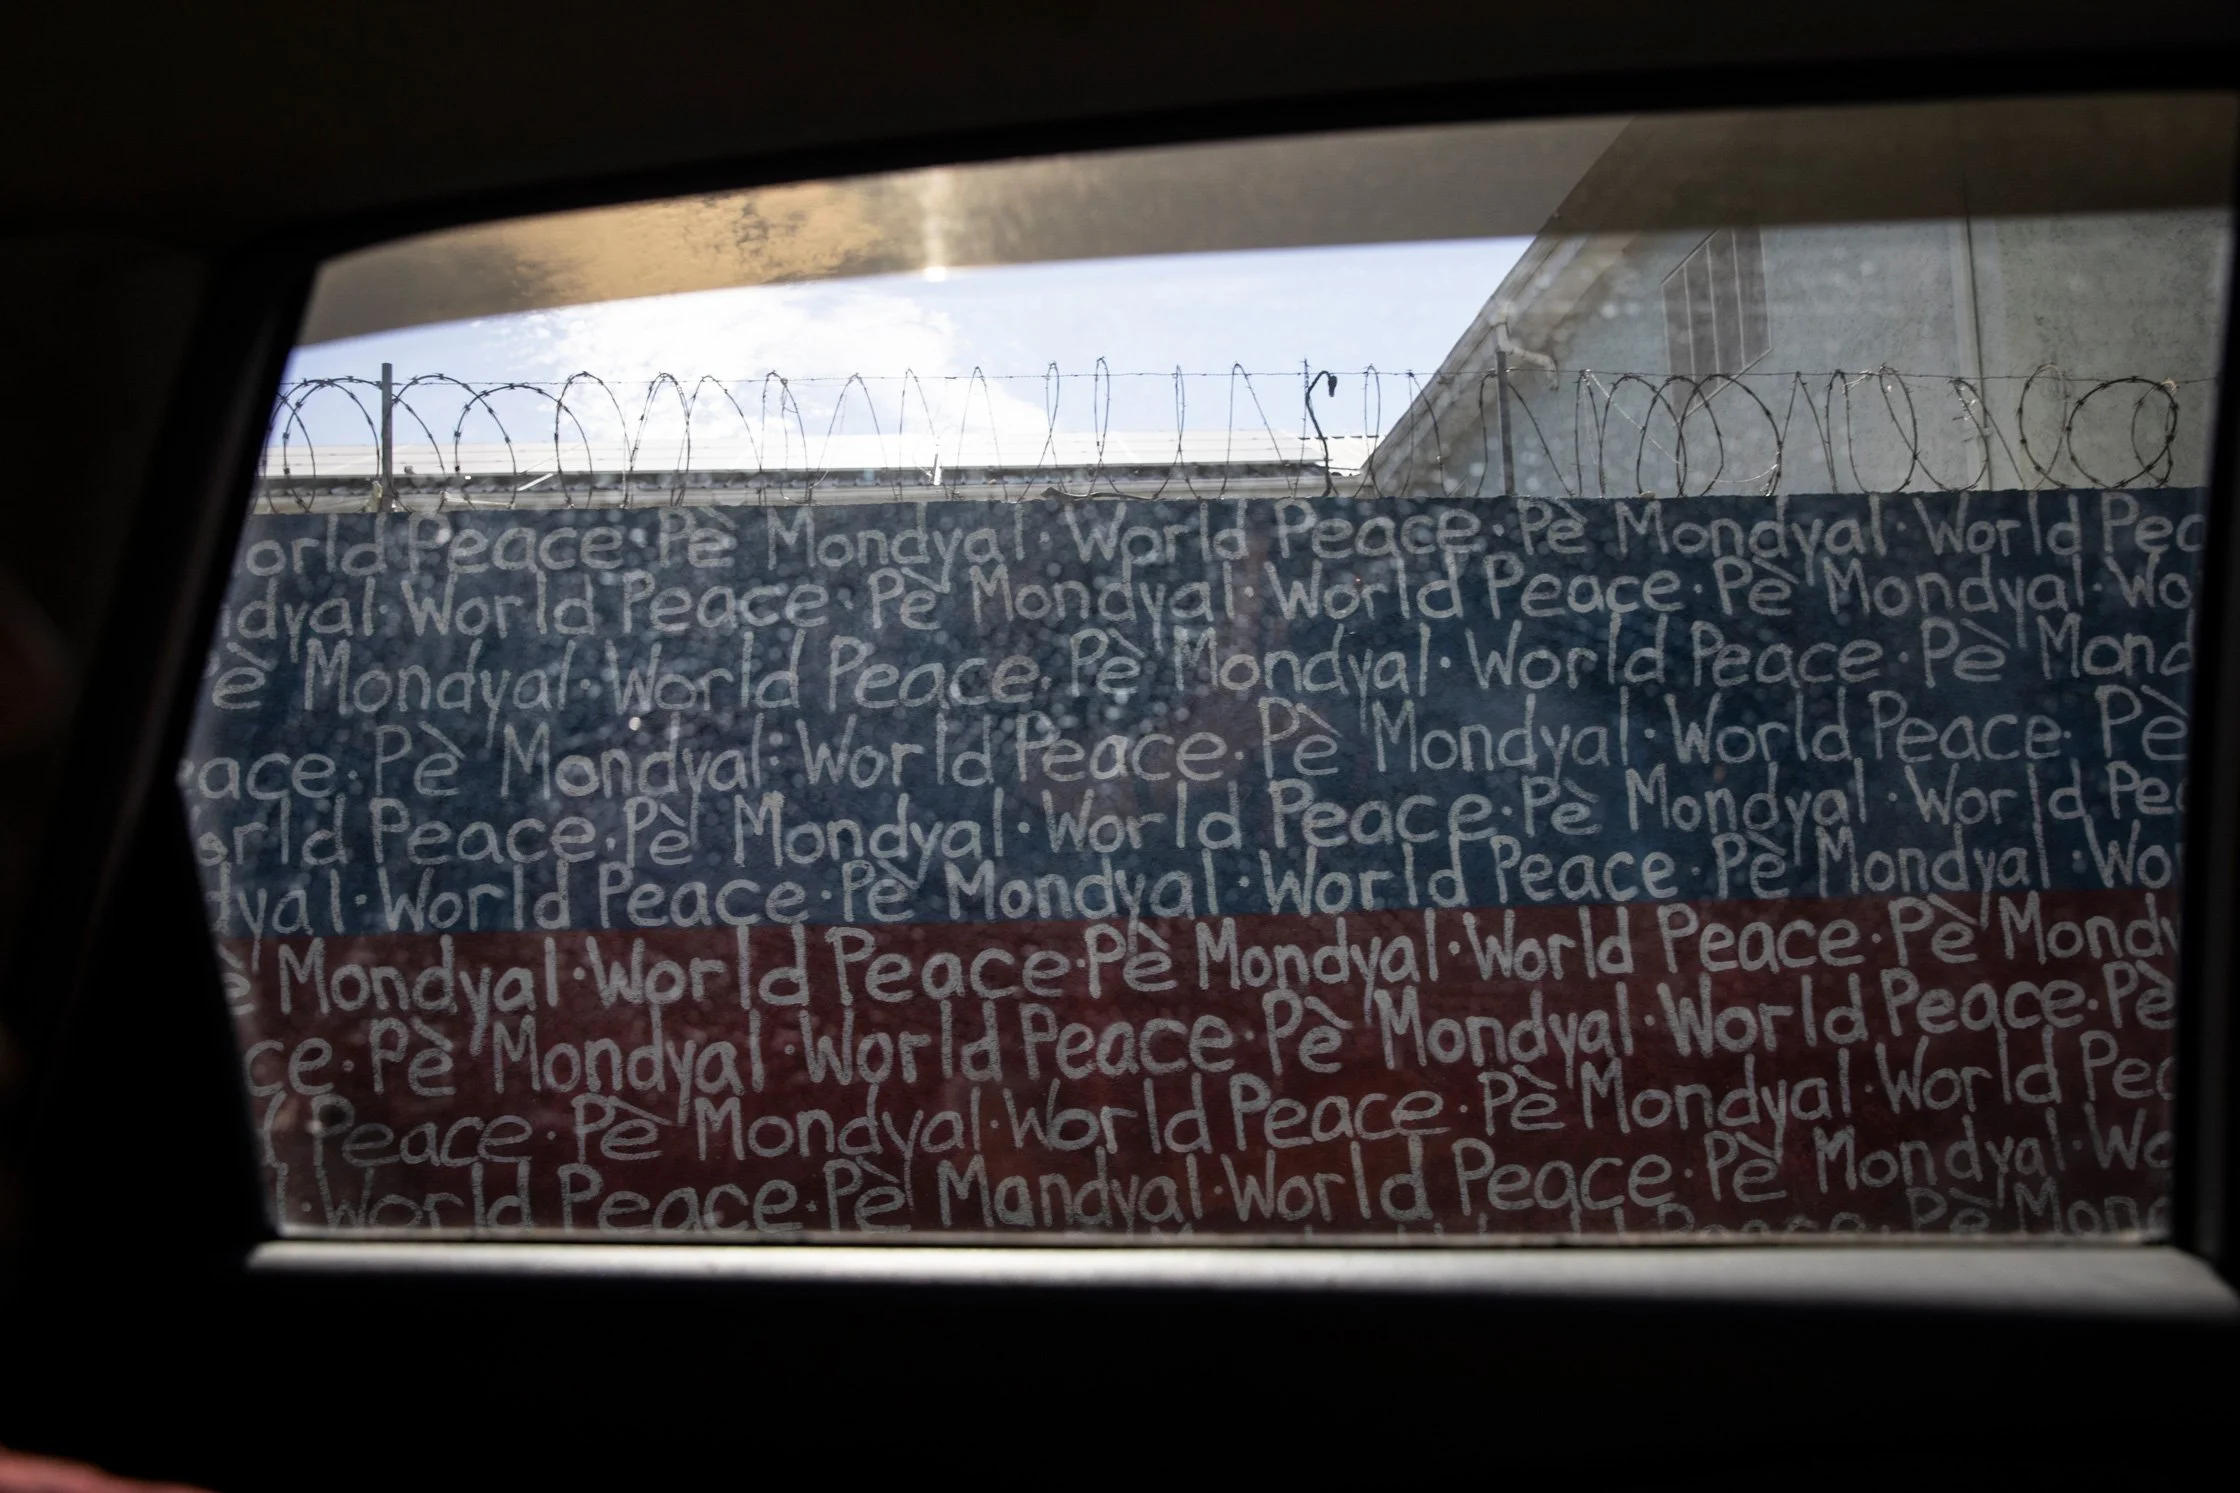 orld Peace · Pè Mondyal · World Peace · Pè Mondyal · World Peac
dyal · World Peace · Pè Mondyal · World Peace · Pè Mondyal · Wo
è Mondyal · World Peace · Pè Mondyal · World Peace · Pè Mond
eace · Pè Mondyal · World Peace · Pè Mondyal · World Peace · Pè
orld Peace · Pè Mondyal · World Peace · Pè Mondyal · World Pea
dyal · World Peace · Pè Mondyal · World Peace · Pè Mondyal · Wo
è Mondyal · World Peace · Pè Mondyal · World Peace · Pè Mondy
ce · Pè Mondyal · World Peace · Pè Mondyal · World Peace · Pè
Peace · Pè Mondyal · World Peace · Pè Mondyal · World Pea
l · World Peace · Pè Mondyal · World Peace · Pè Mondyal · Wo
Peace · Pè Mond